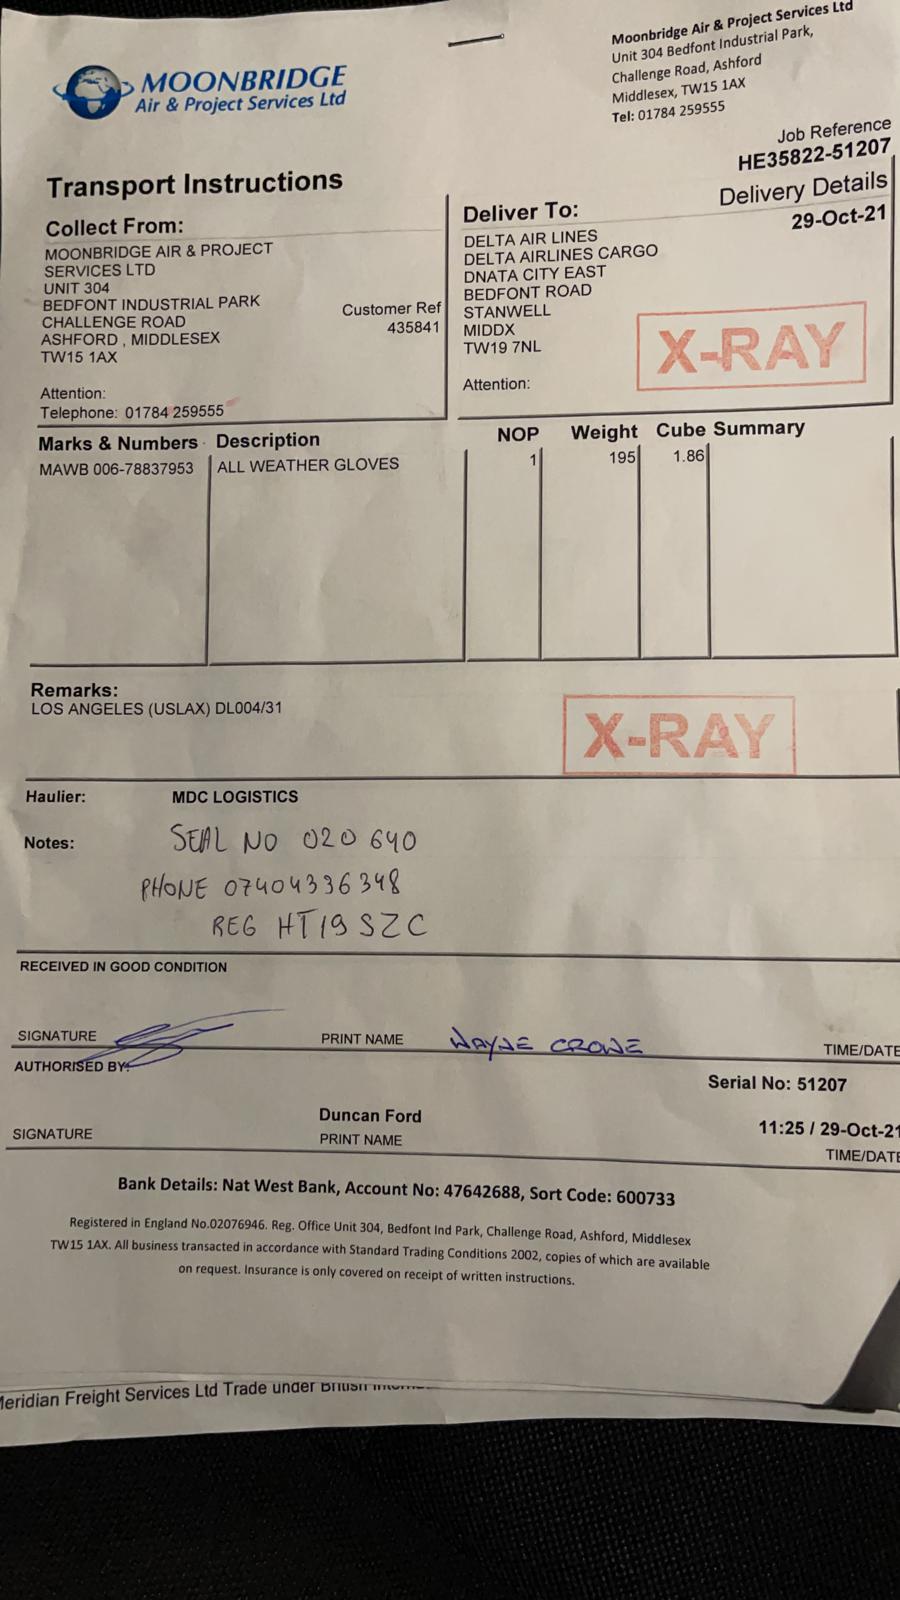 MOONBRIDGE
Air & Project Services Ltd
Moonbridge Air & Project Services Ltd
Unit 304 Bedfont Industrial Park,
Challenge Road, Ashford
Middlesex, TW15 1AX
Tel: 01784 259555
Job Reference
HE35822-51207
Transport Instructions
Delivery Details
29-Oct-21
Collect From:
MOONBRIDGE AIR & PROJECT
SERVICES LTD
UNIT 304
BEDFONT INDUSTRIAL PARK
CHALLENGE ROAD
ASHFORD , MIDDLESEX
TW15 1AX
Customer Ref
435841
Attention:
Telephone: 01784 259555
Deliver To:
DELTA AIR LINES
DELTA AIRLINES CARGO
DNATA CITY EAST
BEDFONT ROAD
STANWELL
MIDDX
TW19 7NL
Attention:
X-RAY
Marks & Numbers Description NOP Weight Cube Summary
MAWB 006-78837953 ALL WEATHER GLOVES 1 195 1.86
Remarks:
LOS ANGELES (USLAX) DL004/31
X-RAY
Haulier: MDC LOGISTICS
Notes: SEAL NO 020 640
PHONE 07404336348
REG HT19 SZC
RECEIVED IN GOOD CONDITION
SIGNATURE PRINT NAME WAYNE CROWE TIME/DATE
AUTHORISED BY:
Serial No: 51207
Duncan Ford 11:25 / 29-Oct-21
SIGNATURE PRINT NAME TIME/DATE
Bank Details: Nat West Bank, Account No: 47642688, Sort Code: 600733
Registered in England No.02076946. Reg. Office Unit 304, Bedfont Ind Park, Challenge Road, Ashford, Middlesex
TW15 1AX. All business transacted in accordance with Standard Trading Conditions 2002, copies of which are available
on request. Insurance is only covered on receipt of written instructions.
Meridian Freight Services Ltd Trade under British